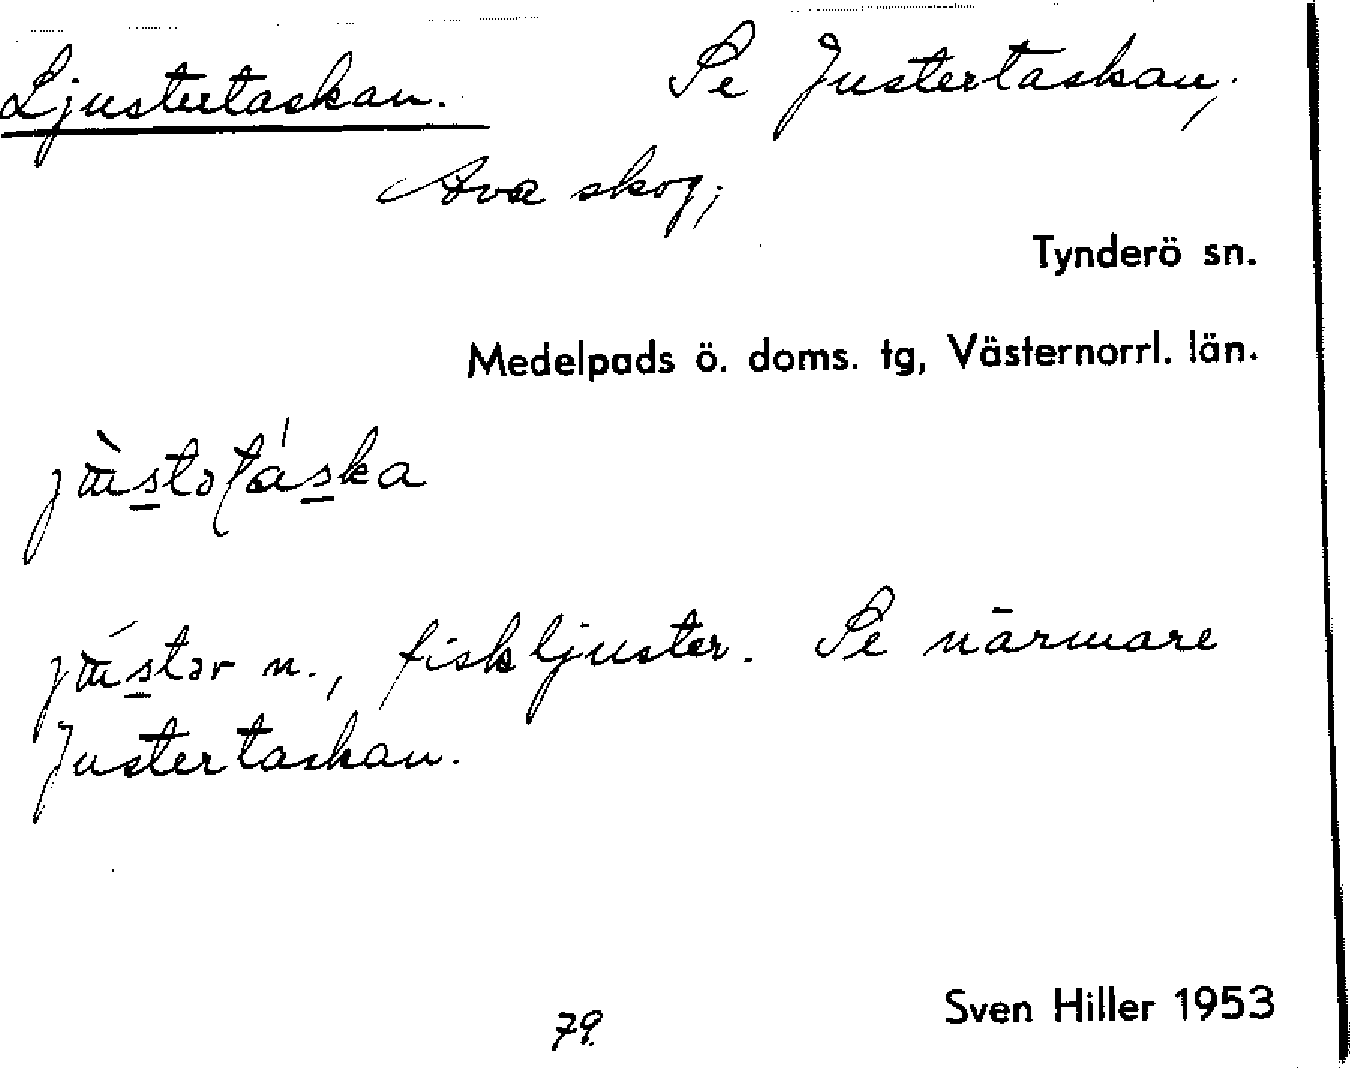 Ljustertaskan. Se Justertaskan,
Ava skog;
Tynderö sn.
Medelpads ö. doms. tg, Västernorrl. län.
fiskljuster. Se närmare
Justertaskan.
79.
Sven Hiller 1953